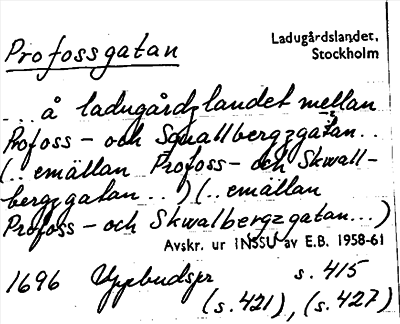 Profossgatan
Ladugårdslandet,
Stockholm
... å ladugårdzlandet mellan
Profoss- och Squallbergzgatan..
(.. emällan Profoss- och Skwall-
bergzgatan ..) (.. emällan
Profoss- och Skwalbergzgatan...)
Avskr. ur INSSU av E.B. 1958-61
1696 Uppbudspr s. 415
(s. 421), (s. 427)